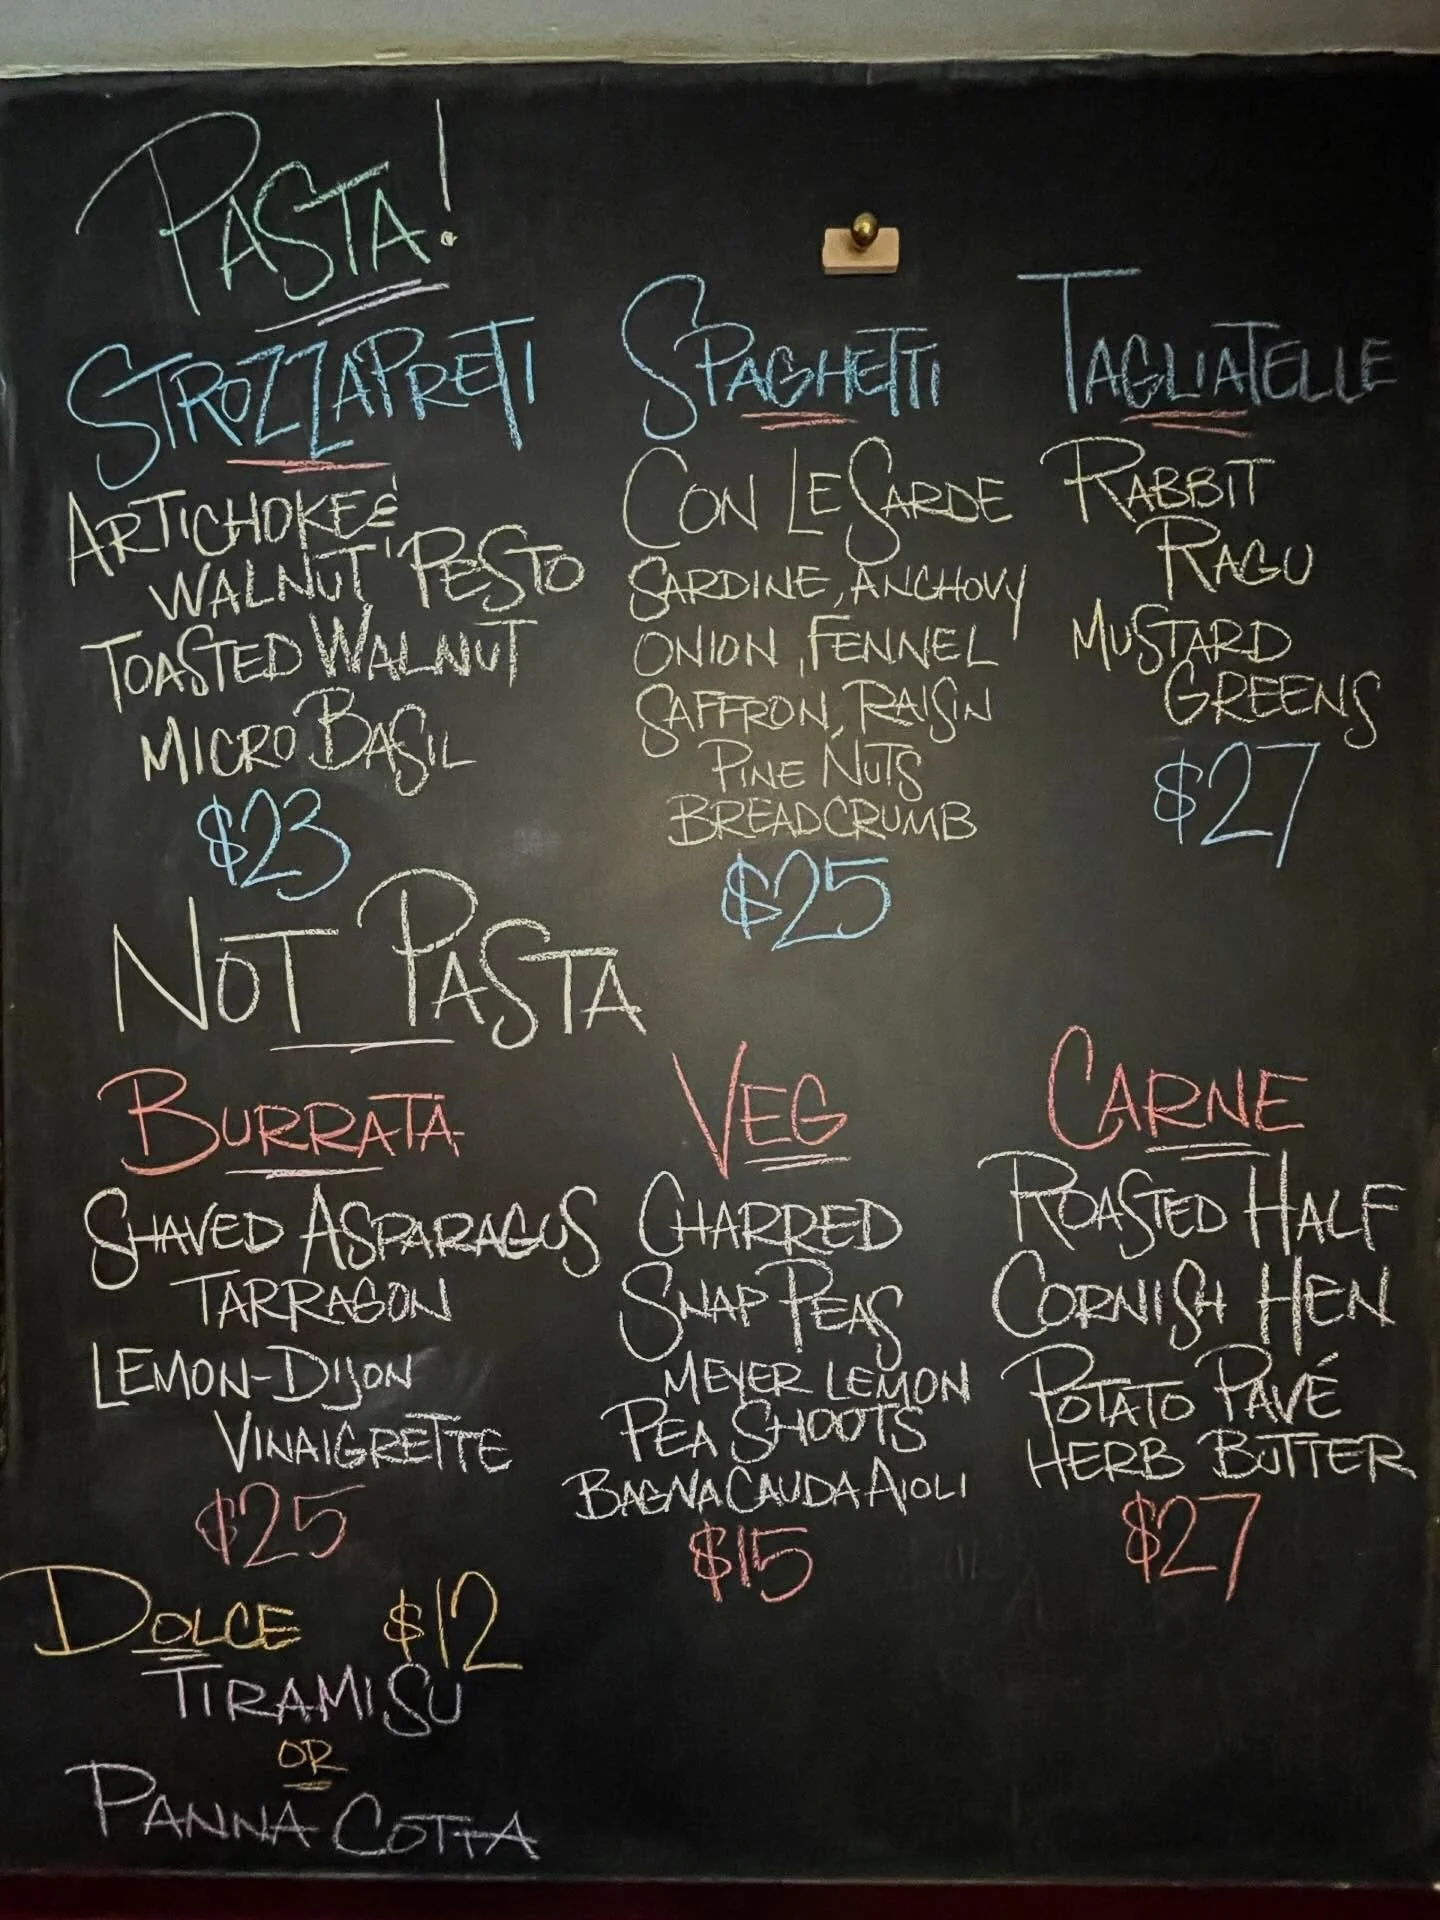 PASTA!
STROZZAPRETI
ARTICHOKE &
WALNUT PESTO
TOASTED WALNUT
MICRO BASIL
$23
SPAGHETTI
CON LE SARDE
SARDINE, ANCHOVY
ONION, FENNEL
SAFFRON, RAISIN
PINE NUTS
BREADCRUMB
$25
TAGLIATELLE
RABBIT
RAGU
MUSTARD
GREENS
$27
NOT PASTA
BURRATA
SHAVED ASPARAGUS
TARRAGON
LEMON-DIJON
VINAIGRETTE
$25
VEG
CHARRED
SNAP PEAS
MEYER LEMON
PEA SHOOTS
BAGNA CAUDA AIOLI
$15
CARNE
ROASTED HALF
CORNISH HEN
POTATO PAVÉ
HERB BUTTER
$27
DOLCE $12
TIRAMISU
OR
PANNA COTTA